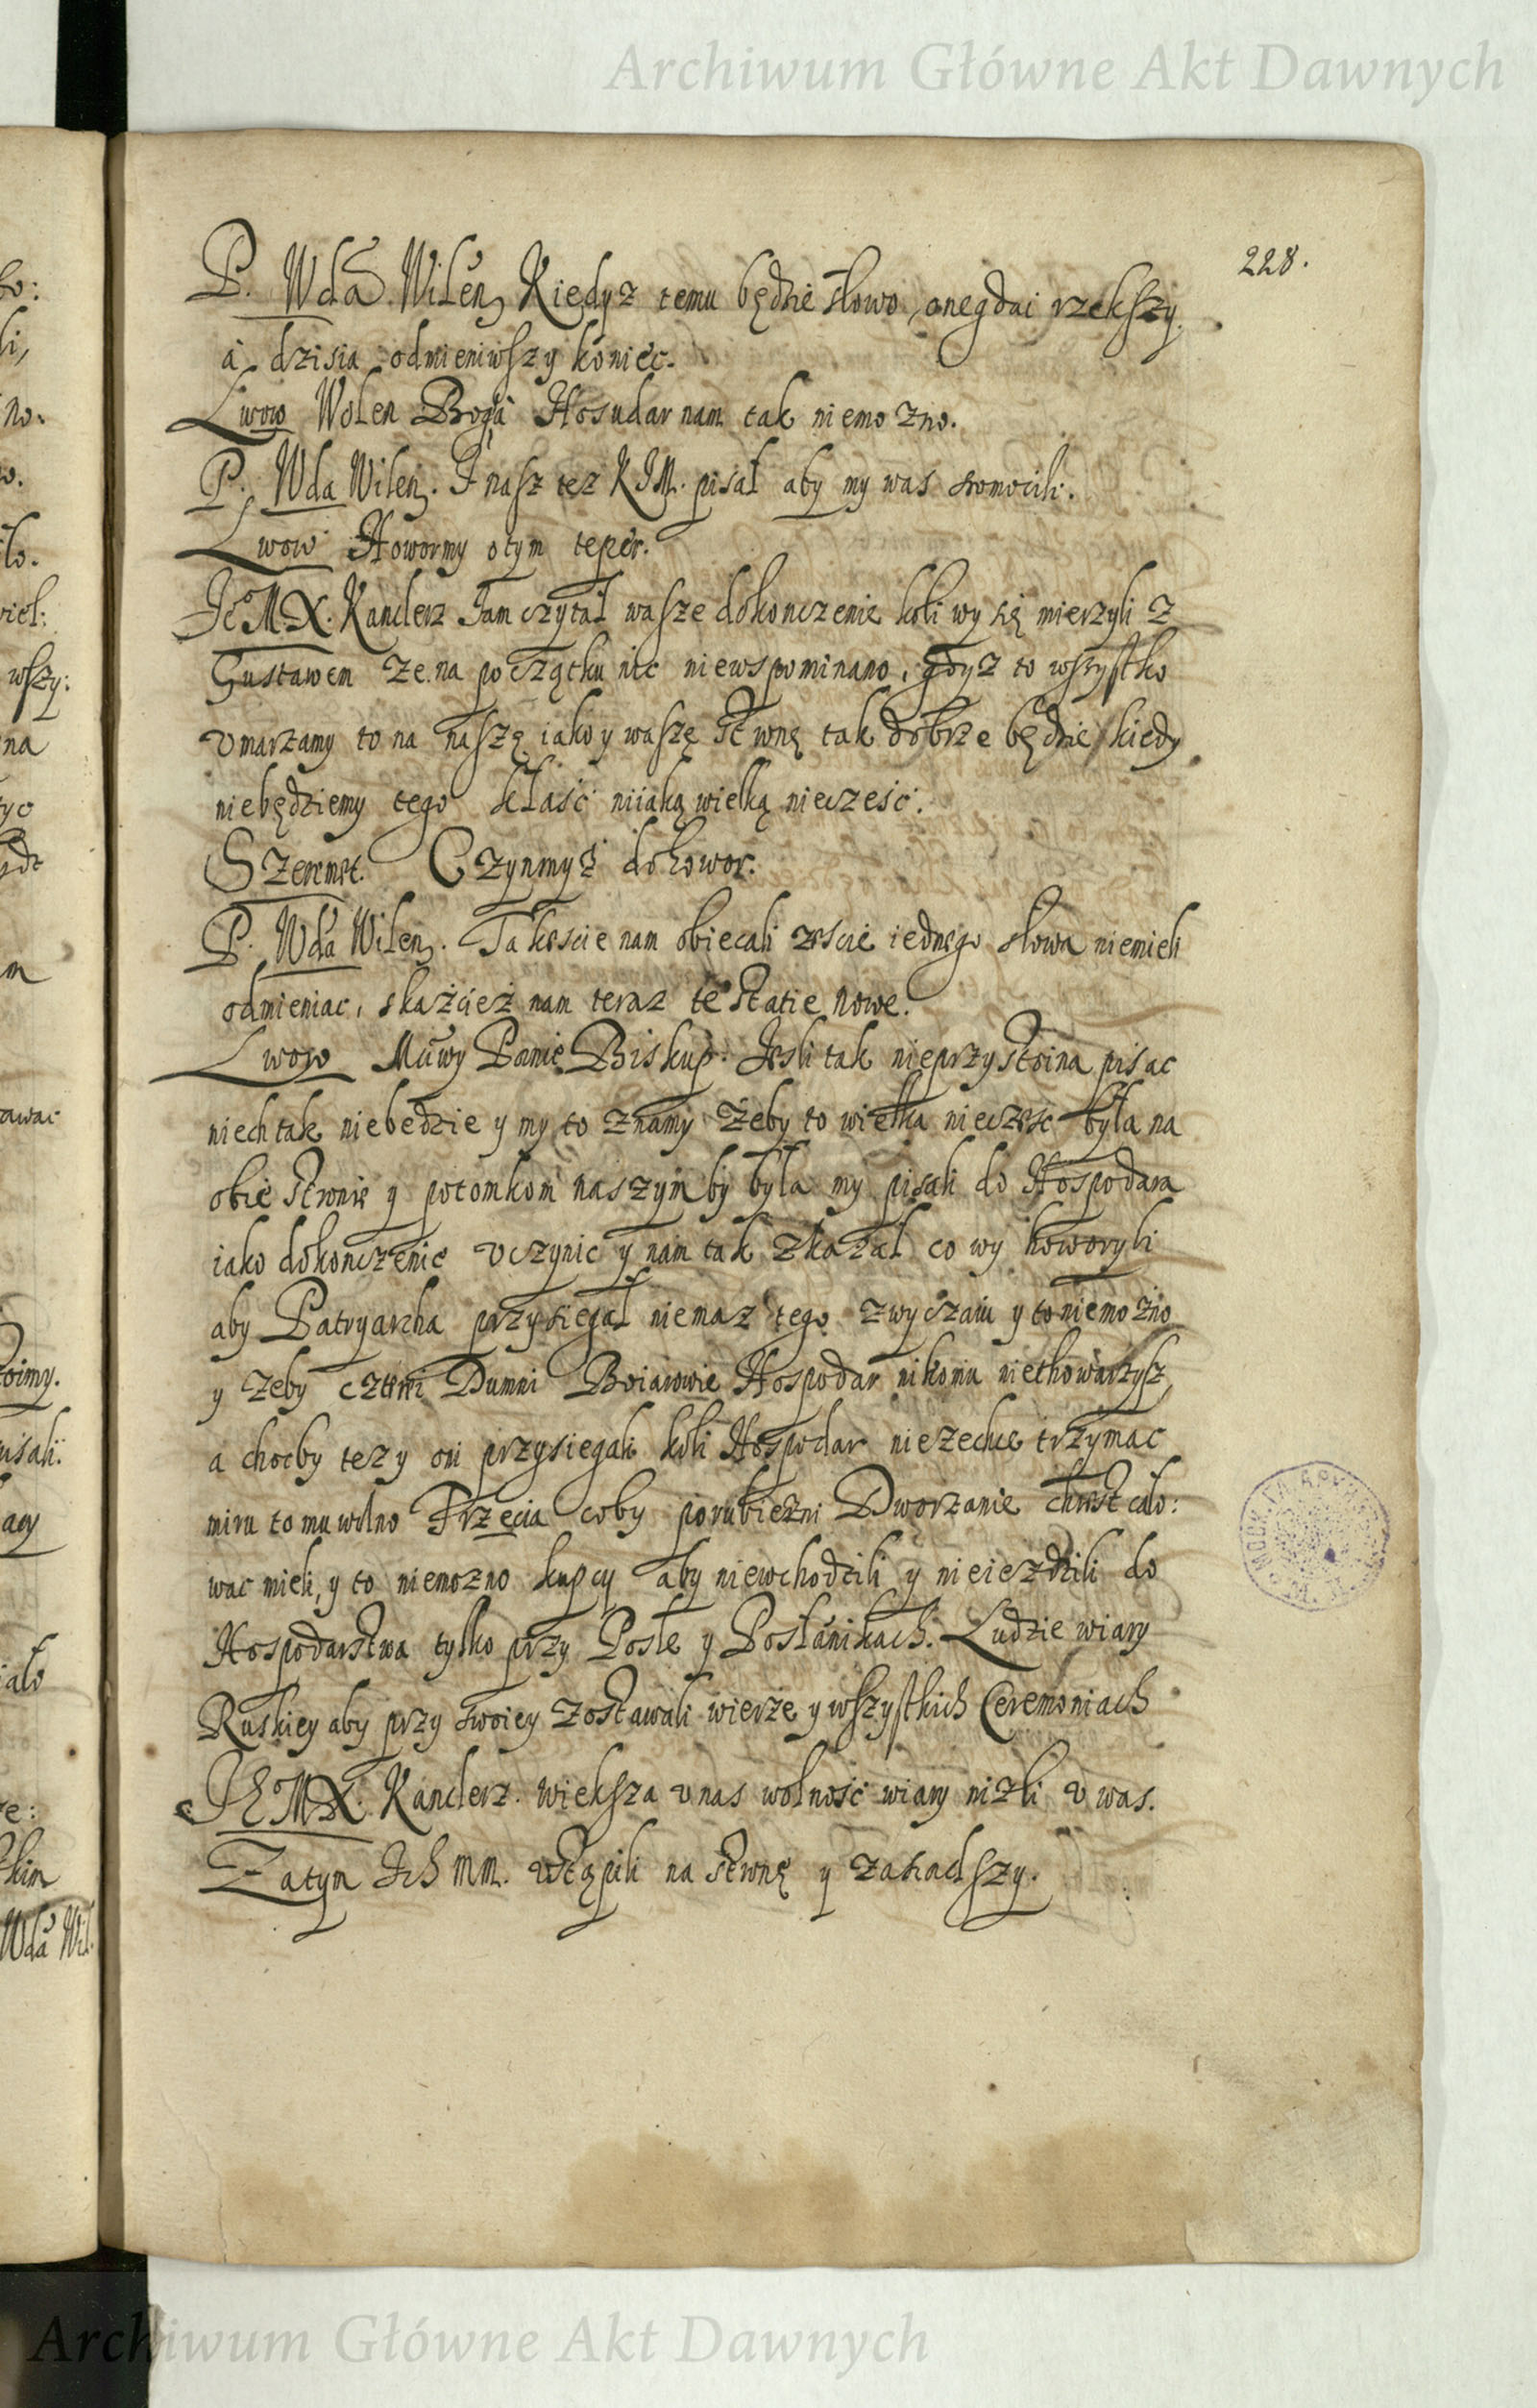 Archiwum Główne Akt Dawnych
228.
P. Wda Wilen. Kiedyz temu będzie słowo, onegdai rzekszy,
à dzisia odmieniwszy koniec.
Lwow Wolen Boga Hosudar nam tak niemozno.
P. Wda Wilen. I nasz tez KIM. pisał aby my was sromocili.
Lwow Howormy o tym teper.
JeMX. Kanclerz Iam czytał wasze dokonczenie koli wy się mierzyli z
Gustawem ze na początku nic niewspominano, gdyz to wszystko
vmarzamy to na naszę iako y waszę stronę tak dobrze będzie kiedy
niebędziemy tego kłaść niiaką wielką niecześć.
Szeremet. Czynmyż dohowor.
P. Wda Wilen. Takescie nam obiecali zescie iednego słowa niemieli
odmieniac, skażcież nam teraz te statie nowe.
Lwow Muwy Panie Biskup. Jesli tak nieprzystoina pisac
niech tak niebedzie y my to znamy żeby to wielka nieczesc była na
obie stronie y potomkom naszym by była my pisali do Hospodara
iako dokonczenie vczynic y nam tak zkazał co wy howoryli
aby Patryarcha przysiegał niemaz tego zwyczaiu y to niemożno
y zeby cztyri Dumni Boiarowie Hospodar nikomu niethowarzysz,
a chocby tez y oni przysiegali koli Hospodar niezechce trzymac
miru to mu wolno Trzecia coby porubiezni Dworzanie chrest cało:
wac mieli, y to niemozno kupcy aby niewchodzili y nieiezdzili do
Hospodarstwa tylko przy Posle y Posłanikach. Ludzie wiary
Ruskiey aby przy swoiey zostawali wierze y wszystkich Ceremoniach
JEMX. Kanclerz. wieksza v nas wolność wiary nizli v was.
Zatym Ich MM. vstąpili na stronę y zasiadszy.
Archiwum Główne Akt Dawnych